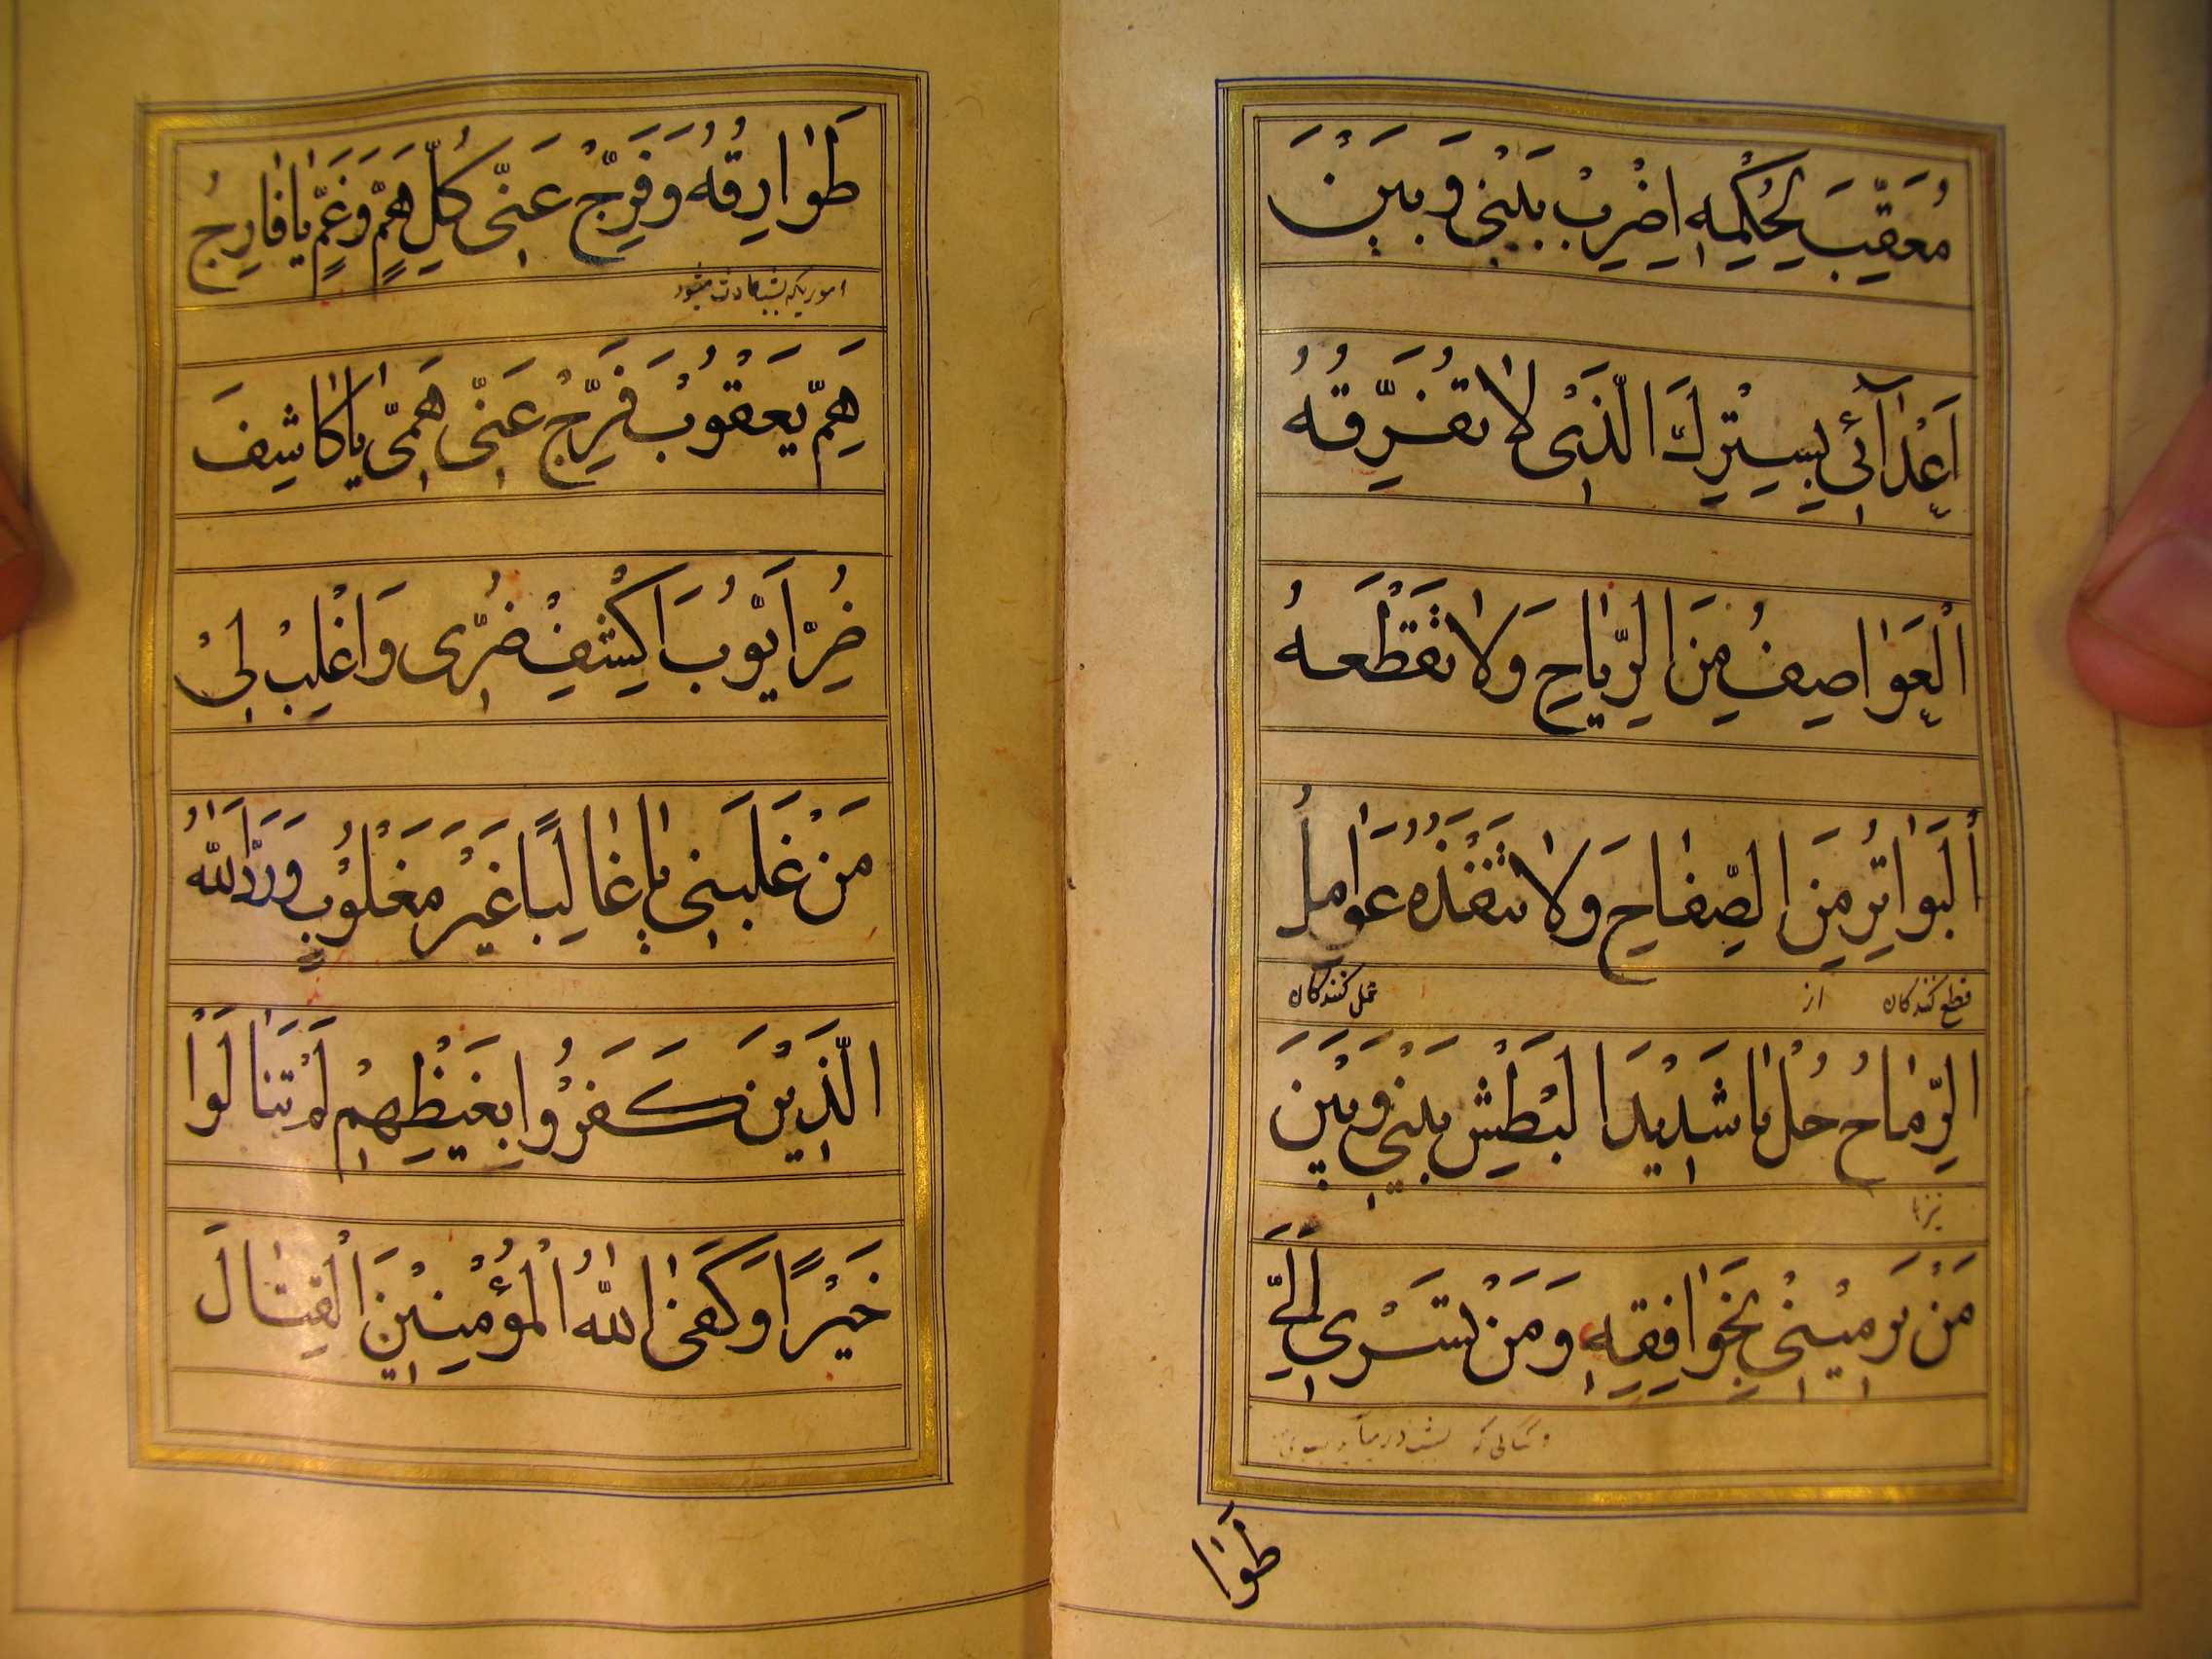 مُعَقِّبَ لِحُكْمِهِ اِضْرِبْ بَيْنِي وَبَيْنَ
اَعْدٰآئِي بِسِتْرِكَ الَّذِي لٰا تُفَرِّقُهُ
الْعَوٰاصِفُ مِنَ الرِّيٰاحِ وَلٰا تَقْطَعُهُ
الْبَوٰاتِرُ مِنَ الصِّفٰاحِ وَلٰا تَنْفُذُهُ عَوٰامِلُ
قطع کنندکان از عمل کنندکان
الرِّمٰاحِ حُلْ يٰا شَدِيْدَ الْبَطْشِ بَيْنِي وَبَيْنَ
مَنْ يَرْمِيْنِيْ بِخَوٰافِقِهِ وَمَنْ تَسْرِي اِلَيَّ
وکسانی که
طَوٰا
طَوٰارِقُهُ وَفَرِّجْ عَنِّي كُلَّ هَمٍّ وَغَمٍّ يٰا فٰارِجُ
اموریکه بشب حادث میشود
هَمِّ يَعْقُوْبَ فَرِّجْ عَنِّي هَمِّي يٰا كٰاشِفَ
ضُرِّ اَيُّوْبَ اكْشِفْ ضُرِّي وَاغْلِبْ لِيْ
مَنْ غَلَبَنِي يٰا غٰالِبًا غَيْرَ مَغْلُوْبٍ وَرَدَّ اللّٰهُ
الَّذِيْنَ كَفَرُوْا بِغَيْظِهِمْ لَمْ يَنٰالُوْا
خَيْرًا وَكَفَى اللّٰهُ الْمُؤْمِنِيْنَ الْقِتٰالَ